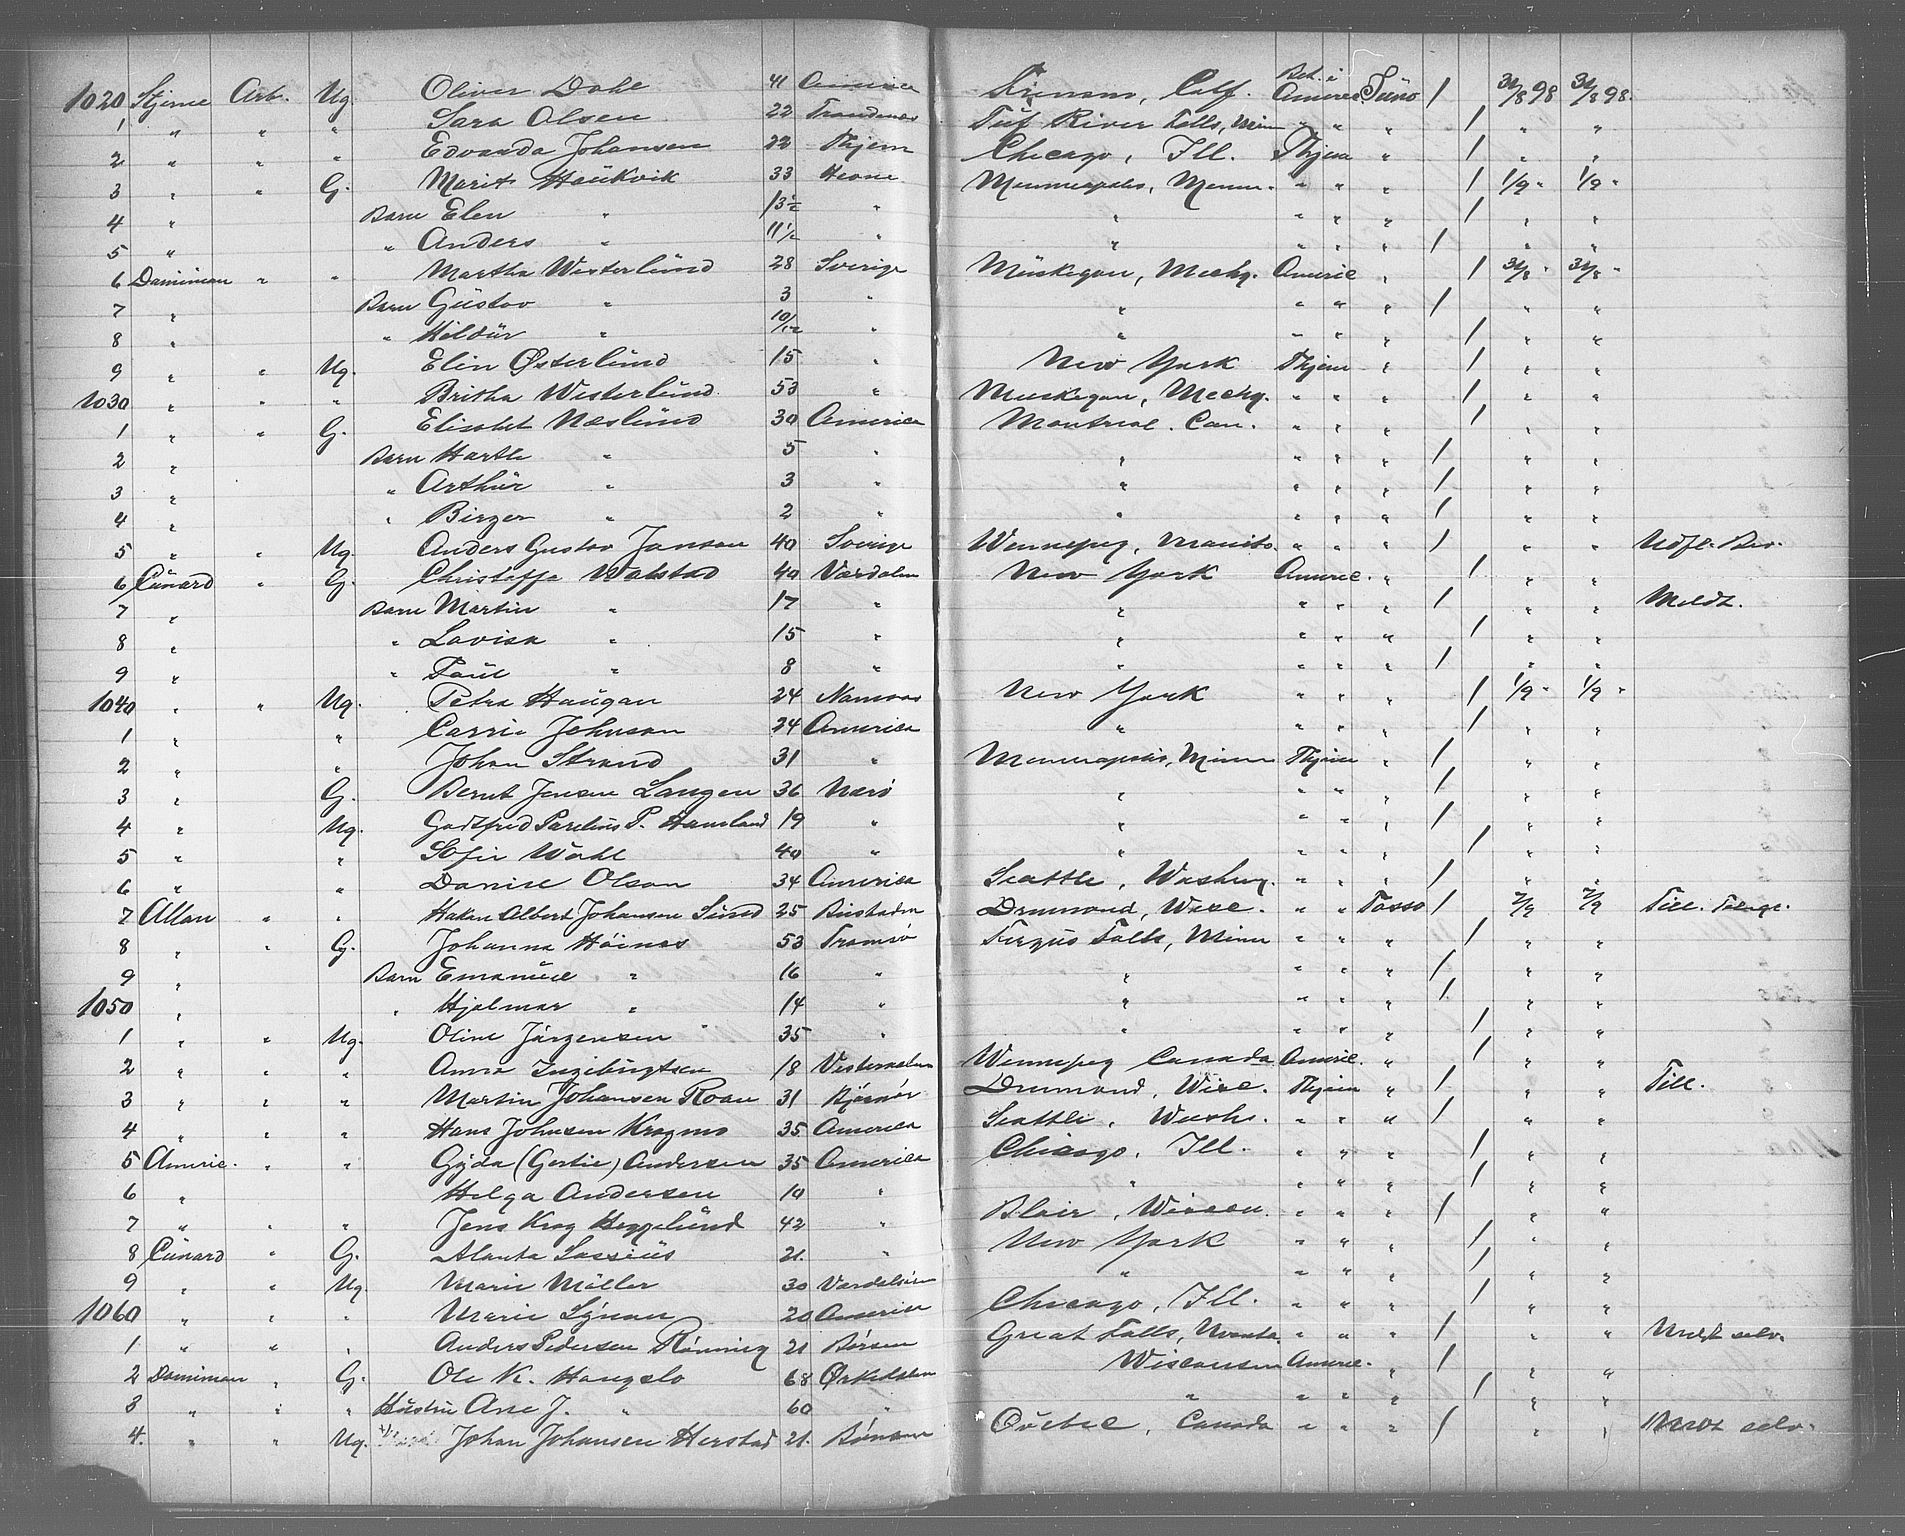 1020 Stjerne Arb. Ug. Oliver Dahl 41 America Calf. Bet. i Americ Juno 1 31/8 98 31/8 98.
1 " " " Sara Olsen 22 Trondenæs Tuf River Falls, Minn " " " 1 " "
2 " " " Edvarda Johansen 22 Thjem Chicago, Ill. Thjem " 1 " "
3 " " G. Marit Haukvik 33 Hevne Minneapolis, Minn. " " " 1 1/9 " 1/9 "
4 " Barn Elen " 13 1/2 " " " " " 1 " "
5 " " Anders " 11 1/2 " " " " " 1 " "
6 Daminian " " Martha Westerlund 28 Sverige Muskegon, Michg. Americ " 1 31/8 " 31/8 "
7 " Barn Gustav " 3 " " " " " 1 " "
8 " " Hildur " 10/12 " " " " " 1 " "
9 " " Ug. Elin Østerlund 15 " New York Thjem " 1 " "
1030 " " " Britha Westerlund 53 " Muskegon, Michg. " " " 1 " "
1 " " G. Elisabet Næslund 30 America Montreal. Can. " " " 1 " "
2 " Barn " 5 " " " " " 1 " "
3 " " Arthur " 3 " " " " " 1 " "
4 " " Birger " 2 " " " " " 1 " "
5 " " Ug. Anders Gustav Janson 40 Sverige Winnepeg, Manito. " " " 1 " " Udfl. Bev.
6 Cunard " G. Walstad 40 Værdalen New York Americ. " 1 " "
7 " Barn Martin " 17 " " " " " 1 " " Meldt.
8 " " Lovisa " 15 " " " " " 1 " "
9 " " Paul " 8 " " " " " 1 " "
1040 " " Ug. Petra Haugan 24 Namsos New York " " " 1 1/9 " 1/9 "
1 " " Carrie Johnson 24 America " " " " 1 " "
2 " " Johan Strand 31 " Minneapolis, Minn Thjem " 1 " "
3 " G. Bernt Jensen Langen 36 Nærö " " " " 1 " "
4 " Ug. Godtfred Parelius P. Hamland 19 " " " " " 1 " "
5 " " Sofie Wahl 40 " " " " " 1 " "
6 " " Olson 34 America Seattle, Washing. " " " 1 " "
7 Allan " " Hakon Albert Johansen Sund 25 Drumond, Wisc. " " Tasso 1 2/9 2/9 Till.
8 " " G. Johanna Höinas 53 Tromsö Fergus Falls, Minn " " " 1 " "
9 " Barn Emanuel " 16 " " " " " 1 " "
1050 " " Hjalmar " 14 " " " " " 1 " "
1 " " Ug. Oline Jörgensen 35 " " " " " 1 " "
2 " " " Anna Ingebrigtsen 18 Winnepeg Canada Americ. " 1 " "
3 " " " Martin Johansen Roan 31 Bjørnör Drumond, Wisc. Thjem " 1 " " Till.
4 " " " Hans Johnsen Kragmo 35 America Seattle, Wash. " " " 1 " "
5 Americ. " " Gyda (Gertie) Andersen 35 America Chicago, Ill. " " " 1 " "
6 " Helga Andersen 10 " " " " " 1 " "
7 " " " Jens Krog Heggelund 42 " Blair, " " " 1 " "
8 Cunard " G. 21. " New York " " " 1 " "
9 " " Ug. Marie Möller 30 " " " " 1 " "
1060 " " " Marie 20 America Chicago, Ill. " " " 1 " "
1 " " " Anders Pedersen Rönning 21 Børsen Great Falls, Monta. " " " 1 " " Meldt selv.
2 Daminian " G. Ole K. Haugslo 68 Ørkedalen Wisconsin Americ. " 1 " "
3 " " " Hustru Ane J. " 60 " " " " " 1 " "
4. " " Ug. Johan Johansen Herstad 21. Quebec, Canada " " " 1 " " Meldt selv.